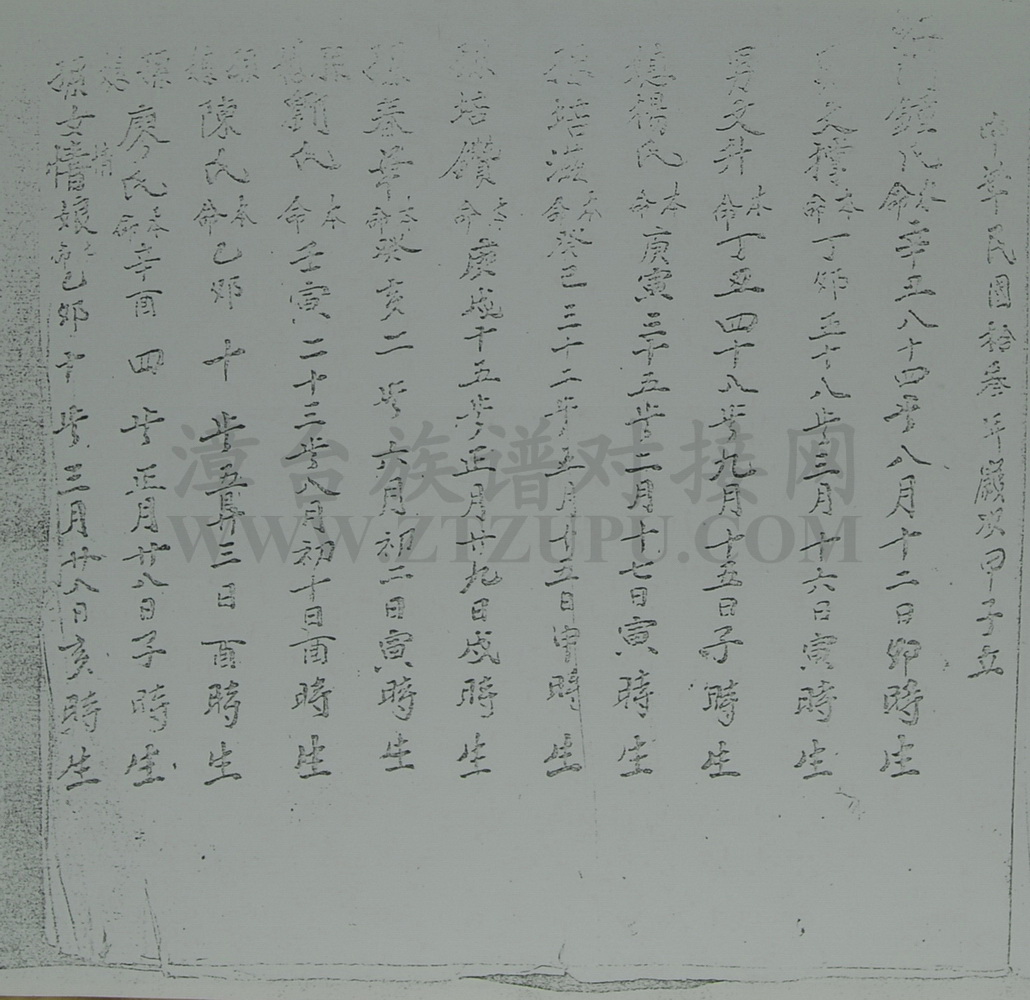 中華民國拾叁年歲次甲子立
鍾氏本命辛丑八十四岁八月十二日卯時生
男文樟本命丁卯五十八岁三月十六日寅時生
男文井本命丁丑四十八岁九月十五日子時生
媳楊氏本命庚寅三十五岁二月十七日寅時生
孫培滋本命癸巳三十二岁五月廿三日申時生
孫培鑽本命庚戌十五岁正月廿九日戌時生
孫春華本命癸亥二岁六月初二日寅時生
孫媳劉氏本命壬寅二十三岁八月初十日酉時生
孫媳陳氏本命乙卯十岁五月三日酉時生
孫媳廖氏本命辛酉四岁正月廿八日子時生
孫女情娘乙卯十岁三月廿八日亥時生
漳台族谱对接网
WWW.ZTZUPU.COM